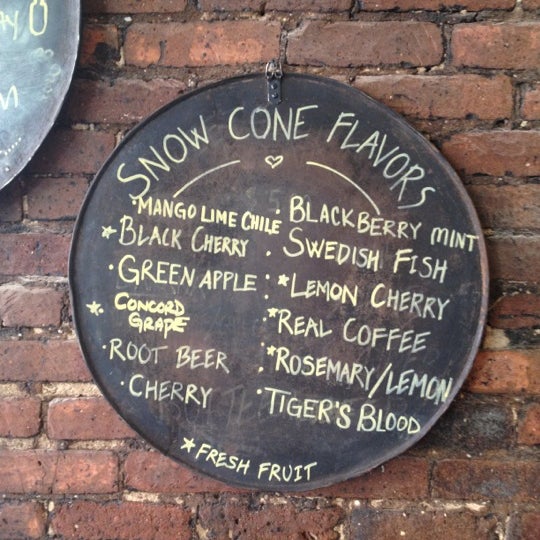 AY O
M
SNOW CONE FLAVORS
· MANGO LIME CHILE
* BLACK CHERRY
· GREEN APPLE
*. CONCORD
GRAPE
· ROOT BEER
· CHERRY
· BLACKBERRY MINT
· SWEDISH FISH
· *LEMON CHERRY
· *REAL COFFEE
· *ROSEMARY/LEMON
· TIGER'S BLOOD
* FRESH FRUIT